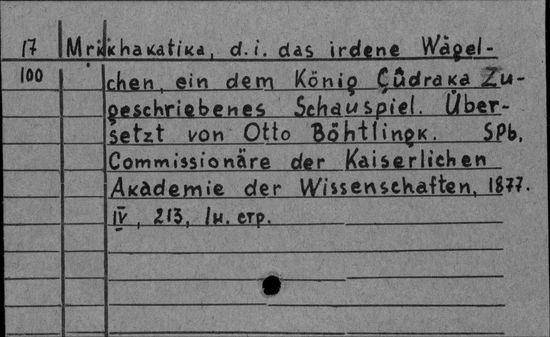 17 Mrikkhakatika, d.i. das irdene Wägel-
100 chen, ein dem König Çûdraka Zu-
geschriebenes Schauspiel. Über-
setzt von Otto Böhtlingk. SPb,
Commissionäre der Kaiserlichen
Akademie der Wissenschaften, 1877.
IV, 213, 1н. стр.